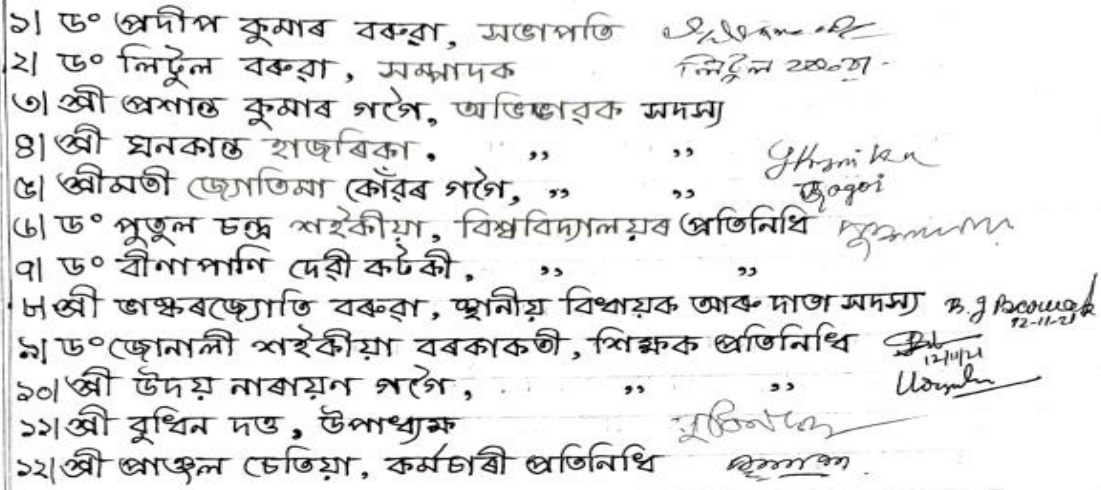 ১। ড° প্ৰদীপ কুমাৰ বৰুৱা, সভাপতি
২। ড° লিটুল বৰুৱা, সম্পাদক লিটুল বৰুৱা
৩। শ্ৰী প্ৰশান্ত কুমাৰ গগৈ, অভিভাৱক সদস্য
৪। শ্ৰী ঘনকান্ত হাজৰিকা, ,, ,,
৫। শ্ৰীমতী জ্যোতিমা কোঁৱৰ গগৈ, ,, ,, Gogoi
৬। ড° পুতুল চন্দ্ৰ শইকীয়া, বিশ্ববিদ্যালয়ৰ প্ৰতিনিধি
৭। ড° বীণাপাণি দেৱী কটকী, ,, ,,
৮। শ্ৰী ভাস্কৰজ্যোতি বৰুৱা, স্থানীয় বিধায়ক আৰু দাতা সদস্য B. J Baruah 12-11-21
৯। ড° জোনালী শইকীয়া বৰকাকতী, শিক্ষক প্ৰতিনিধি 12/11/21
১০। শ্ৰী উদয় নাৰায়ণ গগৈ, ,, ,,
১১। শ্ৰী বুধিন দত্ত, উপাধ্যক্ষ
১২। শ্ৰী প্ৰাঞ্জল চেতিয়া, কৰ্মচাৰী প্ৰতিনিধি